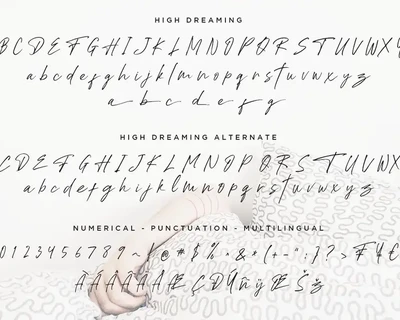 HIGH DREAMING
B C D E F G H I J K L M N O P Q R S T U V W X Y
a b c d e f g h i j k l m n o p q r s t u v w x y z
a b c d e f g
HIGH DREAMING ALTERNATE
B C D E F G H I J K L M N O P Q R S T U V W X
a b c d e f g h i j k l m n o p q r s t u v w x y z
NUMERICAL - PUNCTUATION - MULTILINGUAL
0 1 2 3 4 5 6 7 8 9 ~ ! @ # $ % ^ & * ( + - " : } ? > ₣ ¥ €
Ã Á Â Ä À Å Æ Ç Ð Ú ñ ÿ Œ Š ž